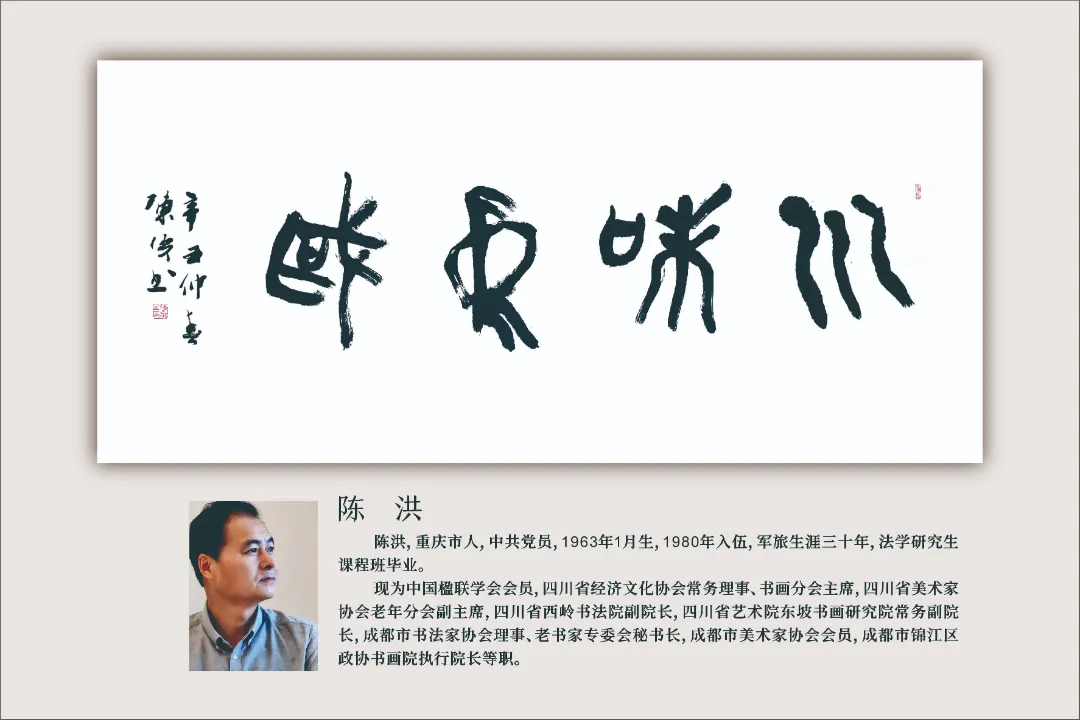 川味
辛丑仲春
陳洪书
陈 洪
陈洪,重庆市人,中共党员,1963年1月生,1980年入伍,军旅生涯三十年,法学研究生
课程班毕业。
现为中国楹联学会会员,四川省经济文化协会常务理事、书画分会主席,四川省美术家
协会老年分会副主席,四川省西岭书法院副院长,四川省艺术院东坡书画研究院常务副院
长,成都市书法家协会理事、老书家专委会秘书长,成都市美术家协会会员,成都市锦江区
政协书画院执行院长等职。